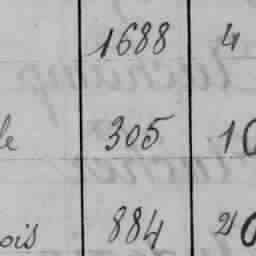 1688 4
le 305 10
ois 884 20